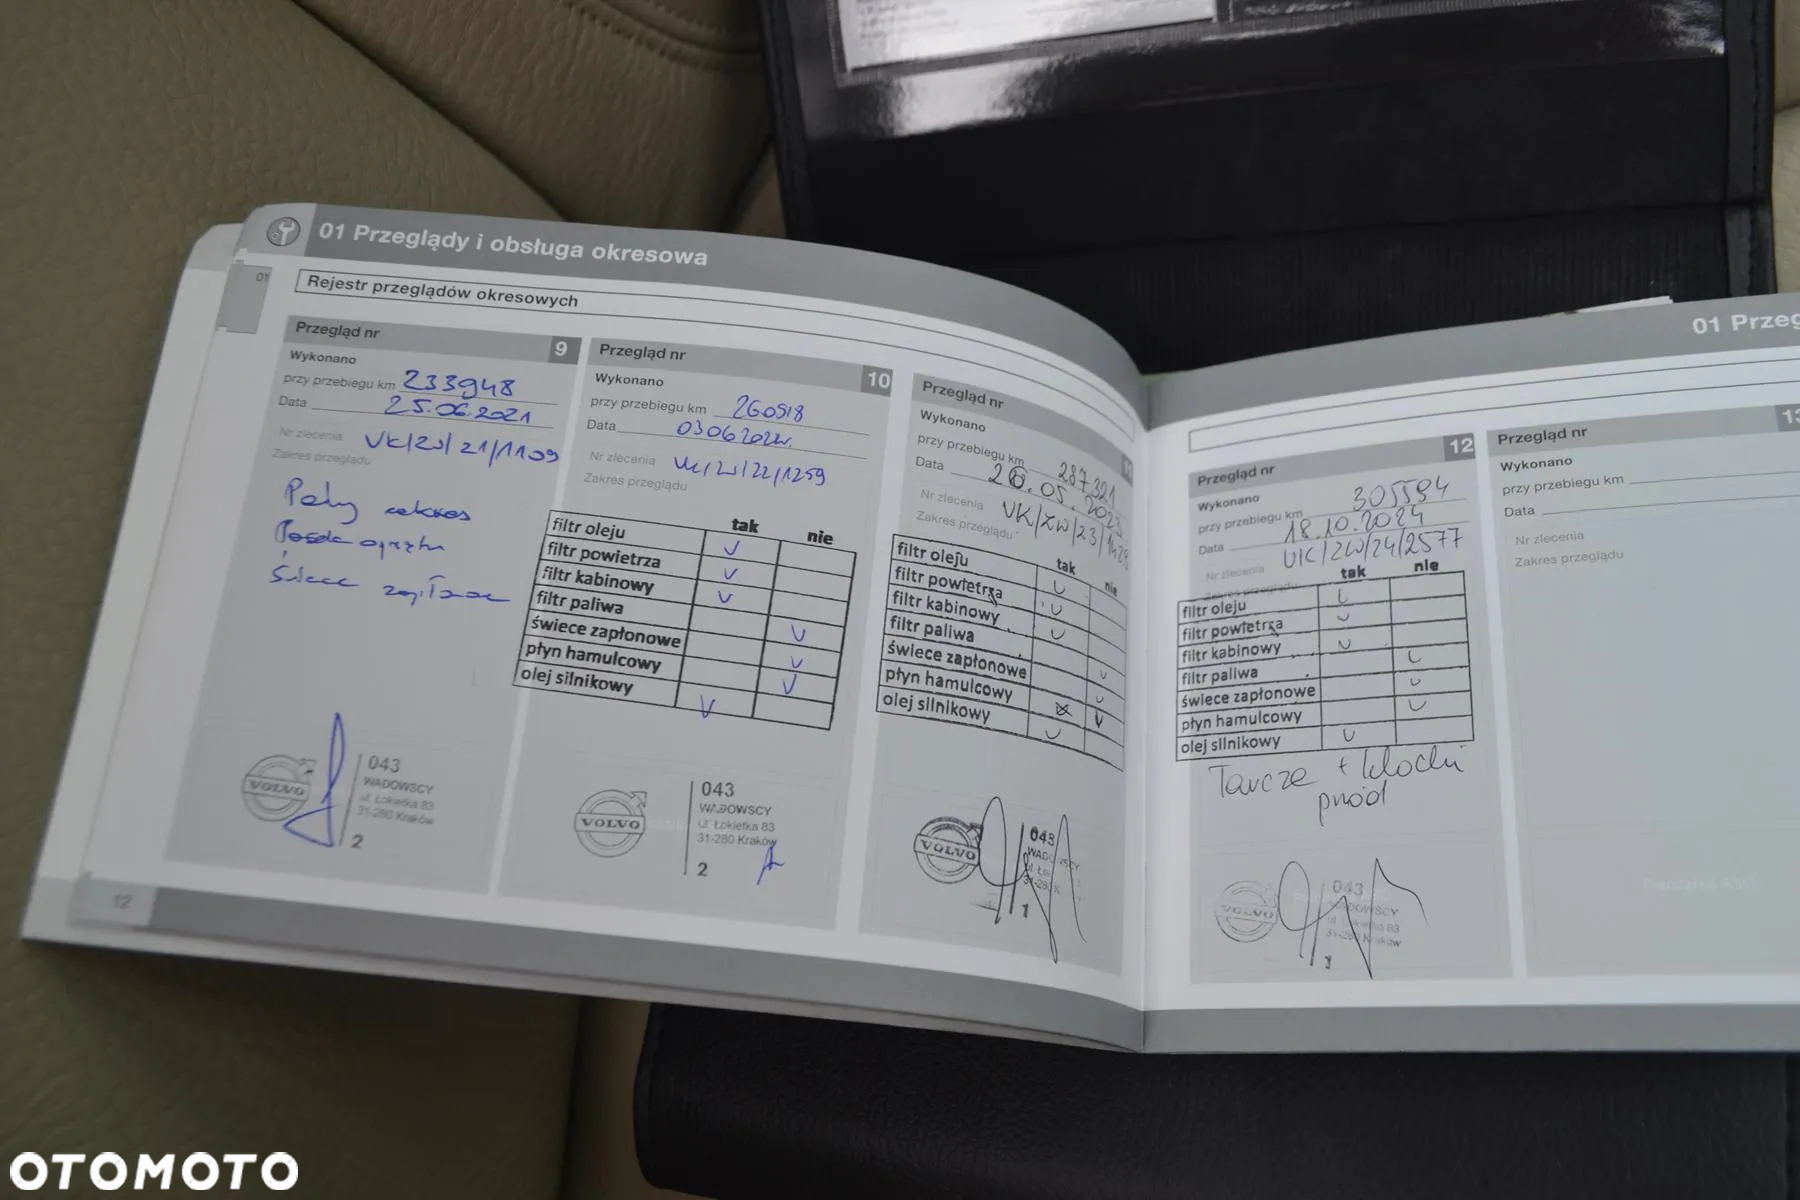 01 Przeglądy i obsługa okresowa
01
Rejestr przeglądów okresowych
Przegląd nr 9
Wykonano
przy przebiegu km 233948
Data 25.06.2021
Nr zlecenia VK/ZW/21/1109
Zakres przeglądu
Pełny zakres
Świece zapłonowe
VOLVO
043
WADOWSCY
ul. Łokietka 83
31-280 Kraków
2
12
Przegląd nr 10
Wykonano
przy przebiegu km 260518
Data 03062022r.
Nr zlecenia VK/ZW/22/1259
Zakres przeglądu
tak nie
filtr oleju
filtr powietrza
filtr kabinowy
filtr paliwa
świece zapłonowe
płyn hamulcowy
olej silnikowy
VOLVO
043
WADOWSCY
ul. Łokietka 83
31-280 Kraków
2
Przegląd nr 11
Wykonano
przy przebiegu km 287321
Data 26.05.2023
Nr zlecenia VK/ZW/23/
Zakres przeglądu
tak nie
filtr oleju
filtr powietrza
filtr kabinowy
filtr paliwa
świece zapłonowe
płyn hamulcowy
olej silnikowy
VOLVO
043
1
01 Przeg
Przegląd nr 12
Wykonano
przy przebiegu km 305594
Data 18.10.2024
Nr zlecenia VK/ZW/24/2577
Zakres przeglądu
tak nie
filtr oleju
filtr powietrza
filtr kabinowy
filtr paliwa
świece zapłonowe
płyn hamulcowy
olej silnikowy
Tarcze + klocki
przód
VOLVO
043
WADOWSCY
ul. Łokietka 83
31-280 Kraków
1
Przegląd nr 13
Wykonano
przy przebiegu km
Data
Nr zlecenia
Zakres przeglądu
OTOMOTO